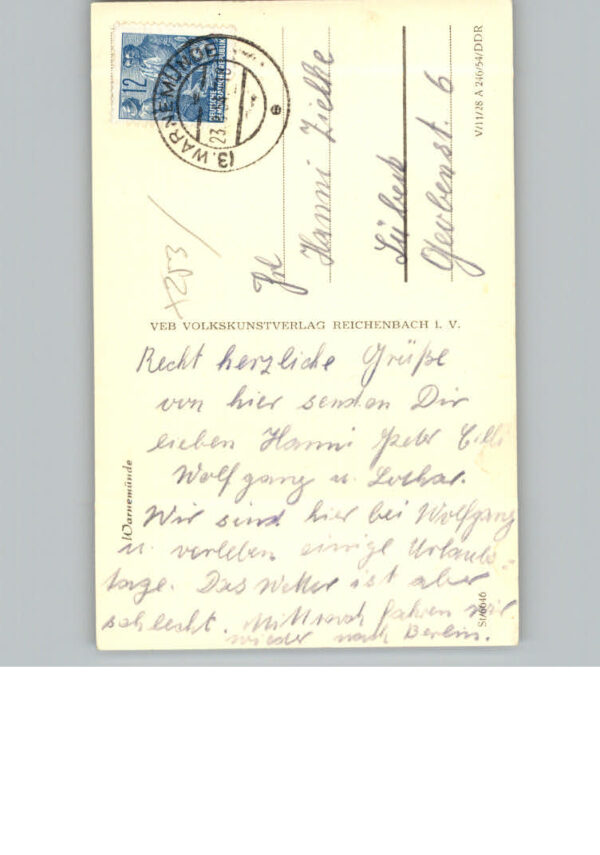 12
DEUTSCHE
DEMOKRATISCHE REPUBLIK
(3. WARNEMÜNDE
23.
Hanni Zielke
Lübeck
V/11/28 A 246/54/DDR
VEB VOLKSKUNSTVERLAG REICHENBACH i. V.
Recht herzliche Grüße
von hier senden Dir
lieben Hanni Peter
Wolfgang u. Lothar.
Wir sind hier bei Wolfgang
u. verleben einige Urlaubs-
tage. Das Wetter ist aber
schlecht. Mittwoch fahren wir
wieder nach Berlin.
Warnemünde
St/6646